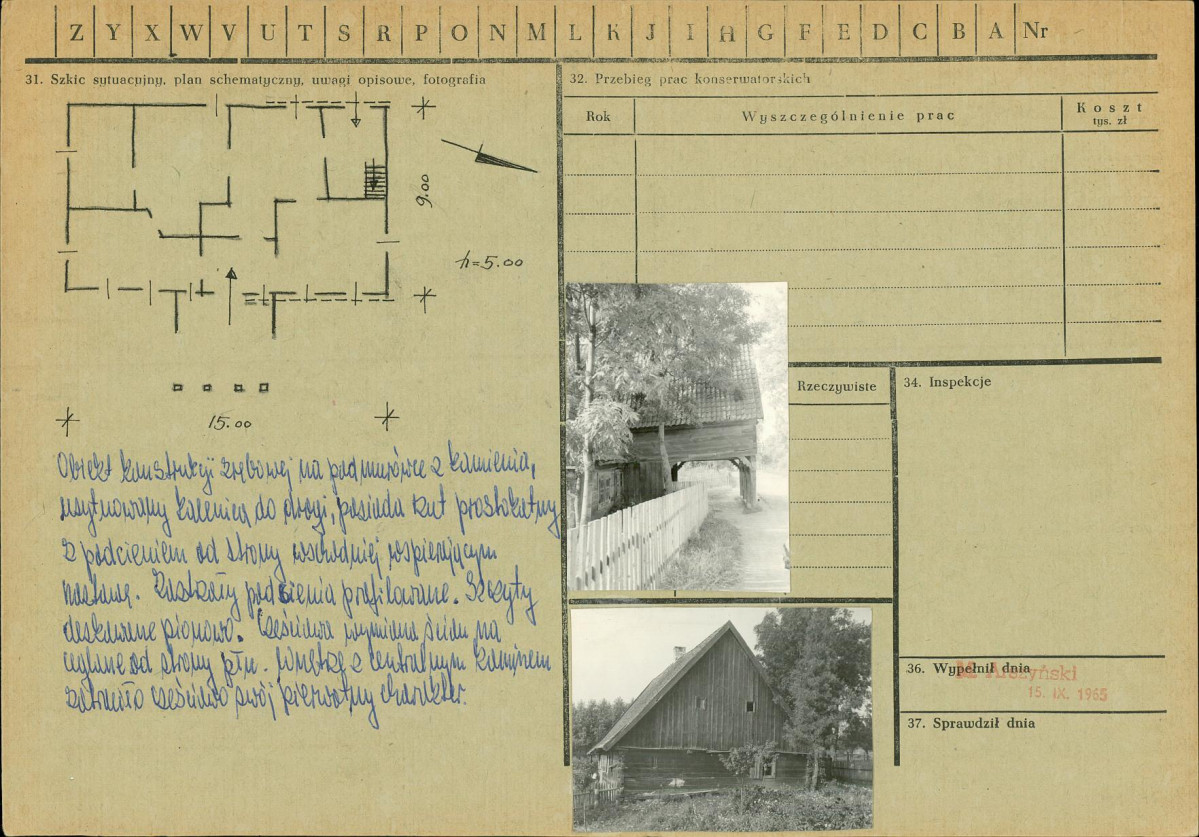 Z Y X W V U T S R P O N M L K J I H G F E D C B A Nr
31. Szkic sytuacyjny, plan schematyczny, uwagi opisowe, fotografia
9.00
h=5.00
15.00
Obiekt konstrukcji zrębowej na podmurówce z kamienia,
usytuowany kalenicą do drogi, posiada rzut prostokątny
z podcieniem od strony wschodniej wspierającym
nastawę. Zastrzały podcienia profilowane. Szczyty
deskowane pionowo. Częściowa wymiana ścian na
ceglane od strony płn. Wnętrze z centralnym kominem
zatraciło częściowo swój pierwotny charakter.
32. Przebieg prac konserwatorskich
Rok
Wyszczególnienie prac
Koszt
tys. zł
Rzeczywiste
34. Inspekcje
36. Wypełnił dnia
15. IX. 1965
37. Sprawdził dnia